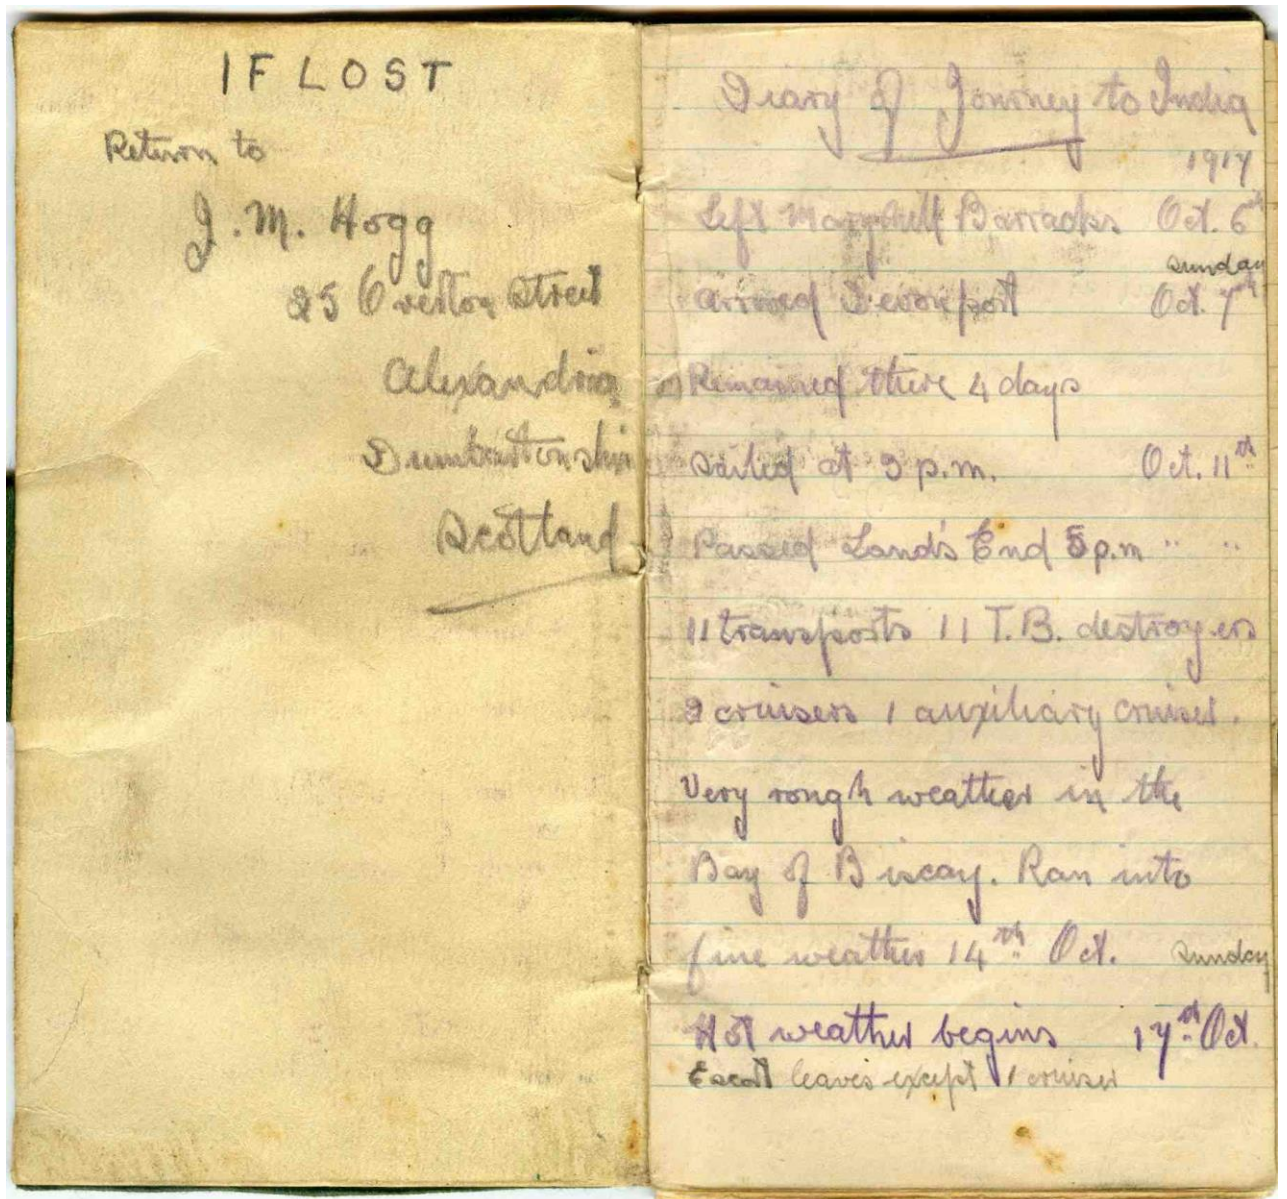 IF LOST
Return to
J. M. Hogg
25 Overton Street
Alexandria
Dumbartonshire
Scotland
Diary of Journey to India
1917
Left Maryhill Barracks Oct. 6th
Sunday
Arrived Devonport Oct. 7th
Remained there 4 days
Sailed at 3 p.m. Oct. 11th
Passed Land's End 5 p.m " "
11 transports 11 T.B. destroyers
2 cruisers 1 auxiliary cruiser.
Very rough weather in the
Bay of Biscay. Ran into
fine weather 14th Oct. Sunday
Hot weather begins 17th Oct.
Escort leaves except 1 cruiser